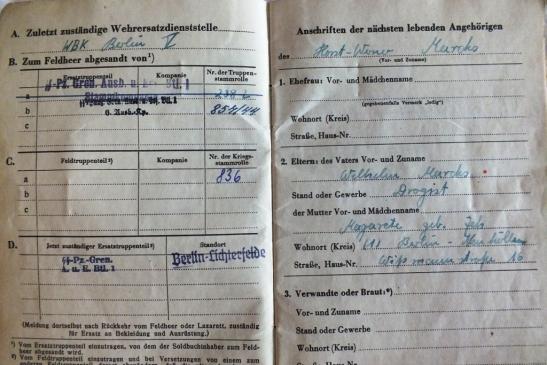 A. Zuletzt zuständige Wehrersatzdienststelle
WBK Berlin V
B. Zum Feldheer abgesandt von¹)
Ersatztruppenteil Kompanie Nr. der Truppenstammrolle
a
b 854/44
c
C. Feldtruppenteil²) Kompanie Nr. der Kriegsstammrolle
a 836
b
c
D. Jetzt zuständiger Ersatztruppenteil²) Standort
Pz.-Gren. Berlin-Lichterfelde
A. u. E. Btl. 1
(Meldung dortselbst nach Rückkehr vom Feldheer oder Lazarett, zuständig
für Ersatz an Bekleidung und Ausrüstung.)
¹) Vom Ersatztruppenteil einzutragen, von dem der Soldbuchinhaber zum Feldheer abgesandt wird.
²) Vom Feldtruppenteil einzutragen und bei Versetzungen von einem zum
Anschriften der nächsten lebenden Angehörigen
des Horst-Werner
(Vor- und Zuname)
1. Ehefrau: Vor- und Mädchenname
(gegebenenfalls Vermerk „ledig“)
Wohnort (Kreis)
Straße, Haus-Nr.
2. Eltern: des Vaters Vor- und Zuname
Wilhelm
Stand oder Gewerbe Drogist
der Mutter Vor- und Mädchenname
Margarete geb.
Wohnort (Kreis) Berlin - Neukölln
Straße, Haus-Nr. 16
3. Verwandte oder Braut:*)
Vor- und Zuname
Stand oder Gewerbe
Wohnort (Kreis)